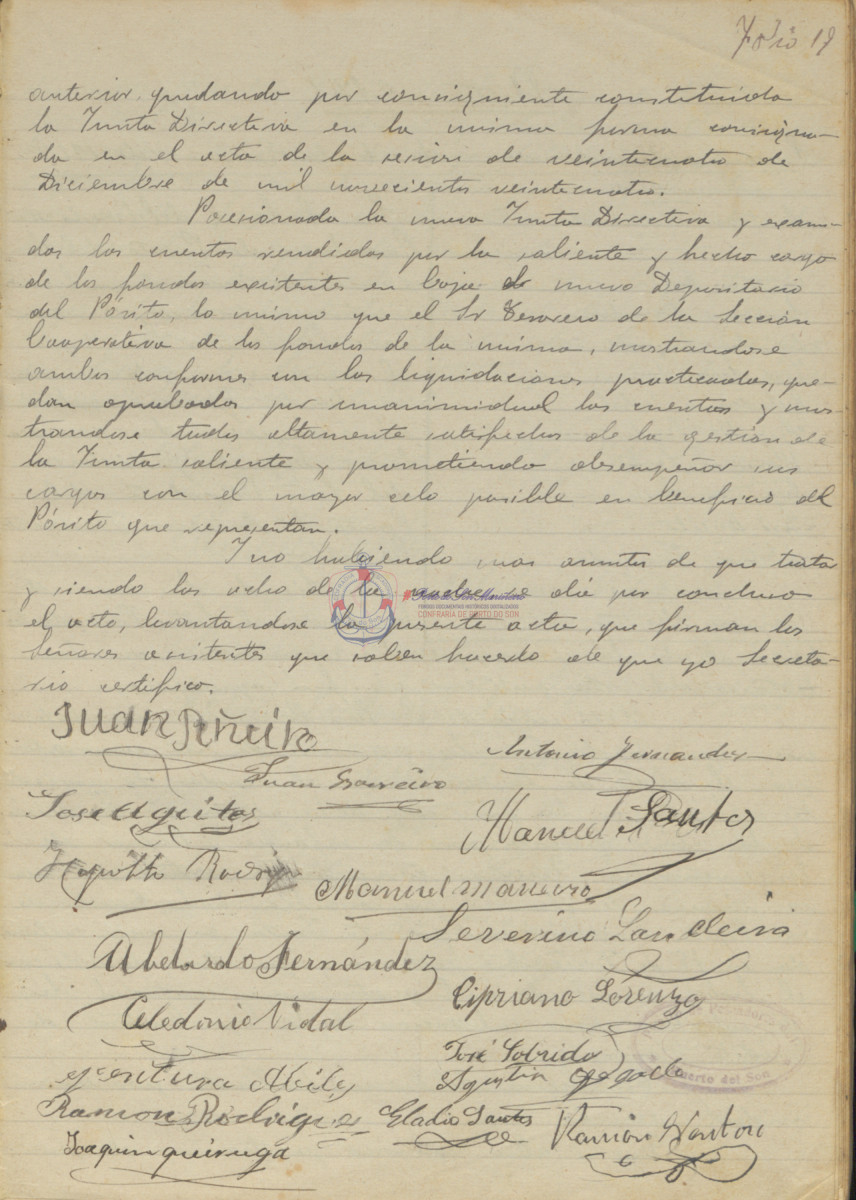 Folio 17
anterior, quedando por consiguiente constituida
la Junta Directiva en la misma forma consigna-
da en el acta de la sesion de veinticuatro de
Diciembre de mil novecientos veinticuatro.
Posesionada la nueva Junta Directiva y exami-
das las cuentas rendidas por la saliente y hecho cargo
de los fondos existentes en Caja el nuevo Depositario
del Pósito, lo mismo que el Sr Tesorero de la Sección
Cooperativa de los fondos de la misma, mostrandose
ambos conformes con las liquidaciones practicadas, que-
dan aprobadas por unanimidad las cuentas y mos-
trandose todos altamente satisfechos de la gestión de
la Junta saliente y prometiendo desempeñar sus
cargos con el mayor celo posible en beneficio del
Pósito que representan.
Y no habiendo mas asuntos de que tratar
y siendo las ocho de la noche se dió por concluso
el acto, levantandose la presente acta, que firman los
Señores asistentes que saben hacerlo de que yo Secreta-
rio certifico.
FONDO DOCUMENTOS HISTÓRICOS DIGITALIZADOS
CONFRARÍA DE PORTO DO SON
Juan Piñeiro
Antonio Fernandez
Juan
Jose Ageitos
Manuel Santos
Hipolito Rodrig
Manuel Maneiro
Severino Landeira
Abelardo Fernández
Cipriano Lorenzo
Celedonio Vidal
José Sobrido
Ventura
Agustin
Puerto del Son
Ramon Rodrigue
Eladio Santos
Ramón
Joaquin queiruga